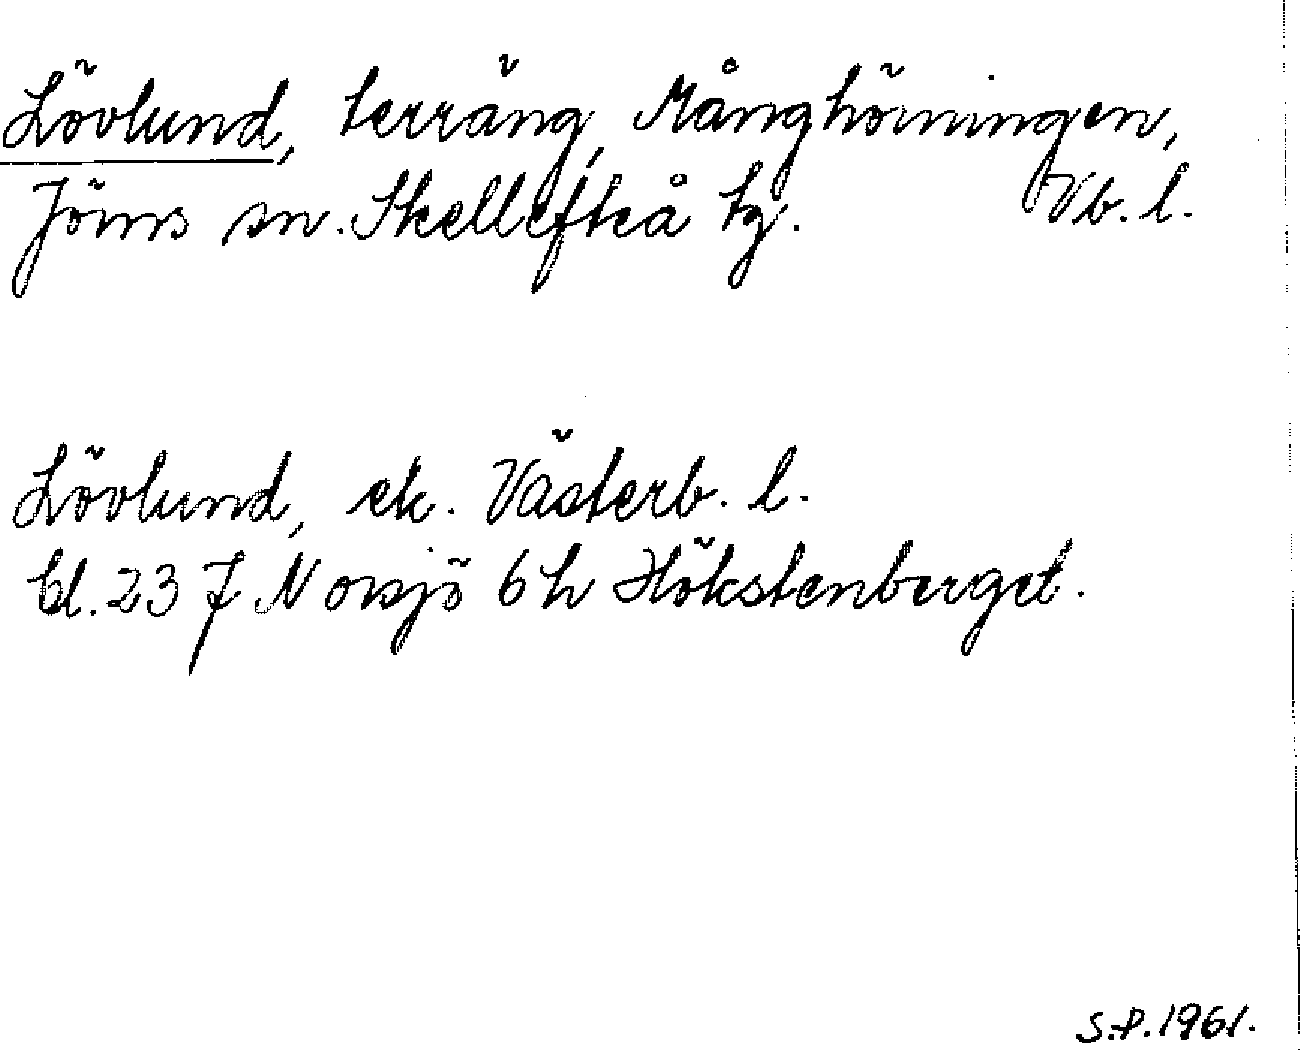 Lövlund, terräng, Månghörningen,
Jörns sn. Skellefteå tg. Vb. l.
Lövlund, ek. Västerb. l.
bl. 23 J Norsjö 6 h Hökstenberget.
S.P. 1961.